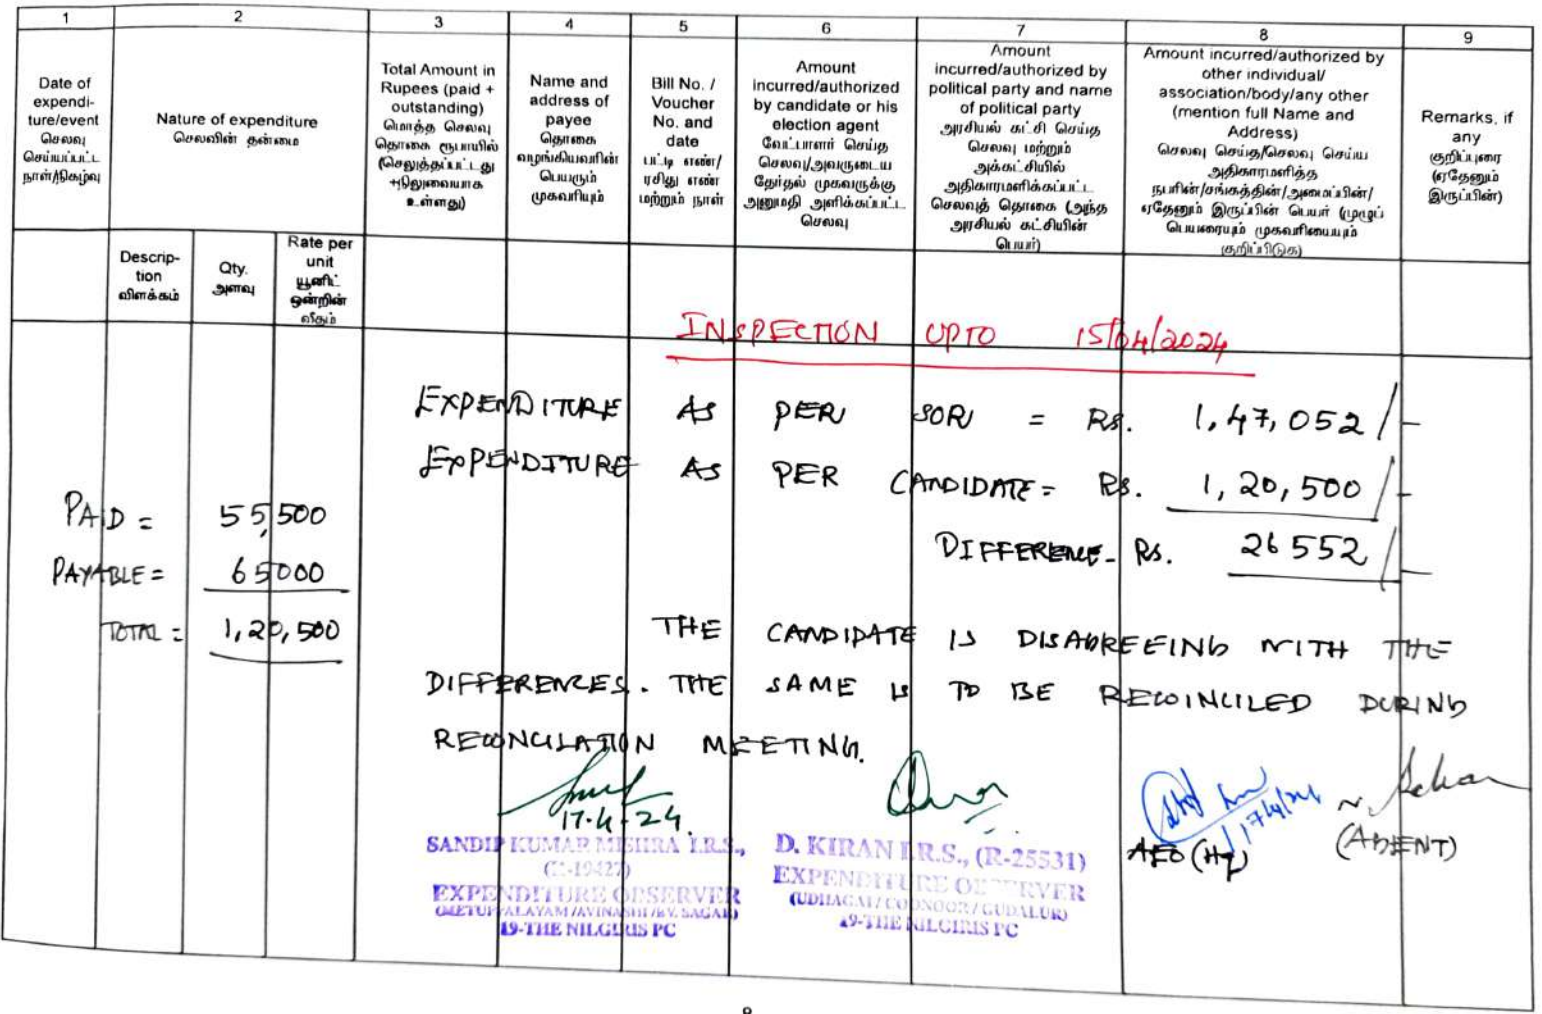 1 2 3 4 5 6 7 8 9
Date of
expendi-
ture/event
செலவு
செய்யப்பட்ட
நாள்/நிகழ்வு
Nature of expenditure
செலவின் தன்மை
Total Amount in
Rupees (paid +
outstanding)
மொத்த செலவு
தொகை ரூபாயில்
(செலுத்தப்பட்டது
+நிலுவையாக
உள்ளது)
Name and
address of
payee
தொகை
வழங்கியவரின்
பெயரும்
முகவரியும்
Bill No. /
Voucher
No. and
date
பட்டி எண்/
ரசிது எண்
மற்றும் நாள்
Amount
incurred/authorized
by candidate or his
election agent
வேட்பாளர் செய்த
செலவு/அவருடைய
தேர்தல் முகவருக்கு
அனுமதி அளிக்கப்பட்ட
செலவு
Amount
incurred/authorized by
political party and name
of political party
அரசியல் கட்சி செய்த
செலவு மற்றும்
அக்கட்சியில்
அதிகாரமளிக்கப்பட்ட
செலவுத் தொகை (அந்த
அரசியல் கட்சியின்
பெயர்)
Amount incurred/authorized by
other individual/
association/body/any other
(mention full Name and
Address)
செலவு செய்த/செலவு செய்ய
அதிகாரமளித்த
நபரின்/சங்கத்தின்/அமைப்பின்/
ஏதேனும் இருப்பின் பெயர் (முழுப்
பெயரையும் முகவரியையும்
குறிப்பிடுக)
Remarks, if
any
குறிப்புரை
(ஏதேனும்
இருப்பின்)
Descrip-
tion
விளக்கம்
Qty.
அளவு
Rate per
unit
யூனிட்
ஒன்றின்
வீதம்
INSPECTION UPTO 15/04/2024
EXPENDITURE AS PER SOR = Rs. 1,47,052/-
EXPENDITURE AS PER CANDIDATE = Rs. 1,20,500/-
DIFFERENCE - Rs. 26552/-
PAID = 55,500
PAYABLE = 65000
TOTAL = 1,20,500
THE CANDIDATE IS DISAGREEING WITH THE
DIFFERENCES. THE SAME IS TO BE RECOINCILED DURING
RECONCILATION MEETING.
17-4-24
SANDIP KUMAR MISHRA I.R.S.,
EXPENDITURE OBSERVER
(METUPALAYAM/AVINASHI/BV. SAGAR)
19-THE NILGIRIS PC
D. KIRAN I.R.S., (R-25531)
EXPENDITURE OBSERVER
(UDHAGAI/COONOOR/GUDALUR)
19-THE NILGIRIS PC
17/4/24
AEO (Hq)
(AGENT)
8